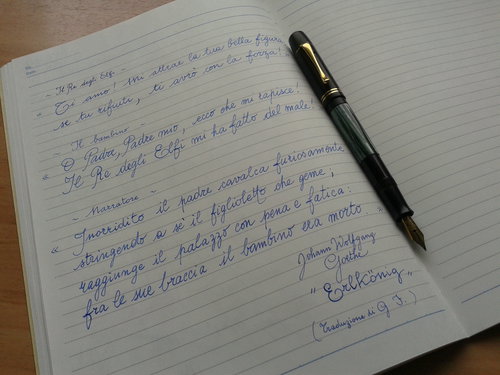 ~ Il Re degli Elfi ~
" Ti amo! Mi attrae la tua bella figura
se tu rifiuti, ti avrò con la forza!
~ Il bambino ~
« O Padre, Padre mio, ecco che mi rapisce!
Il Re degli Elfi mi ha fatto del male!
~ Narratore ~
« Inorridito il padre cavalca furiosamente
stringendo a sè il figlioletto che geme,
raggiunge il palazzo con pena e fatica:
fra le sue braccia il bambino era morto. "
Johann Wolfgang
Goethe
" Erlkönig "
(Traduzione di G F.)